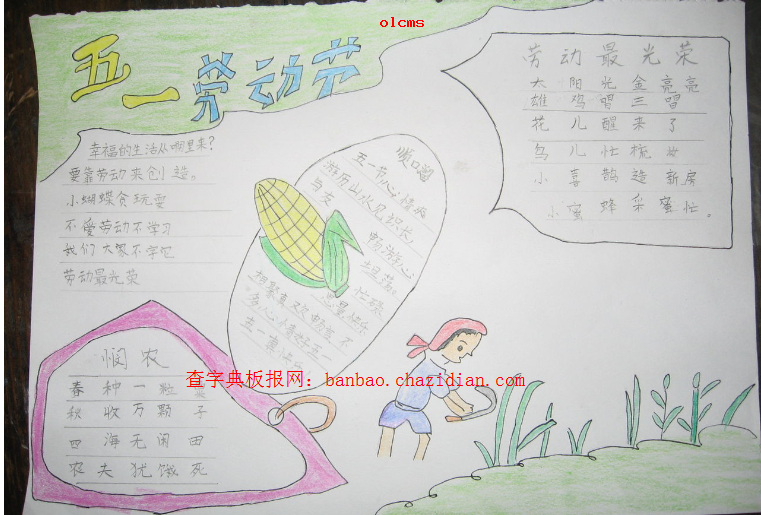 olcms
五一劳动节
幸福的生活从哪里来?
要靠劳动来创造。
小蝴蝶贪玩耍
不爱劳动不学习
我们大家不学它
劳动最光荣
顺口溜
五一节心情爽
游历山水见识长
劳动最光荣
太阳光金亮亮
雄鸡唱三唱
花儿醒来了
鸟儿忙梳妆
小喜鹊造新房
小蜜蜂采蜜忙。
悯农
春种一粒
秋收万颗子
四海无闲田
农夫犹饿死
查字典板报网：banbao.chazidian.com